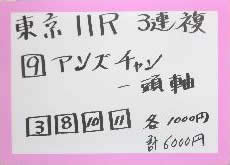 東京11R 3連複
⑨ アンズチャン
一頭軸
3 8 10 11 各1000円
計6000円